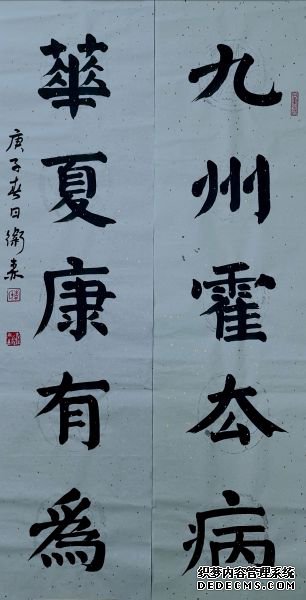 九州霍厺病
華夏康有爲
庚子春日衛
织梦内容管理系统
DEDECMS.COM